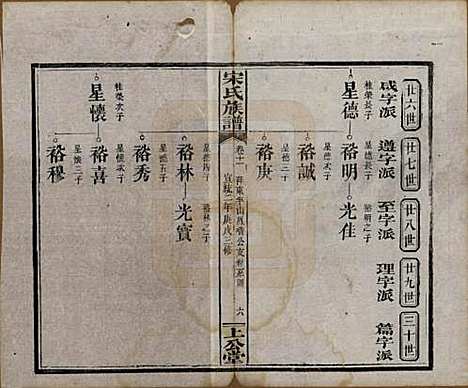 廿六世 咸字派
廿七世 遵字派
廿八世 至字派
廿九世 理字派
三十世 篇字派
星德 桂榮長子
裕明 星德長子
光佳 裕明之子
裕誠 星德二子
裕庚 星德三子
宋氏族譜
卷十一
宣統二年庚戌三修
六
上公堂
裕林 星德四子
光實 裕林之子
裕秀 星德五子
星懷 桂榮次子
裕喜 星懷長子
裕穆 星懷二子